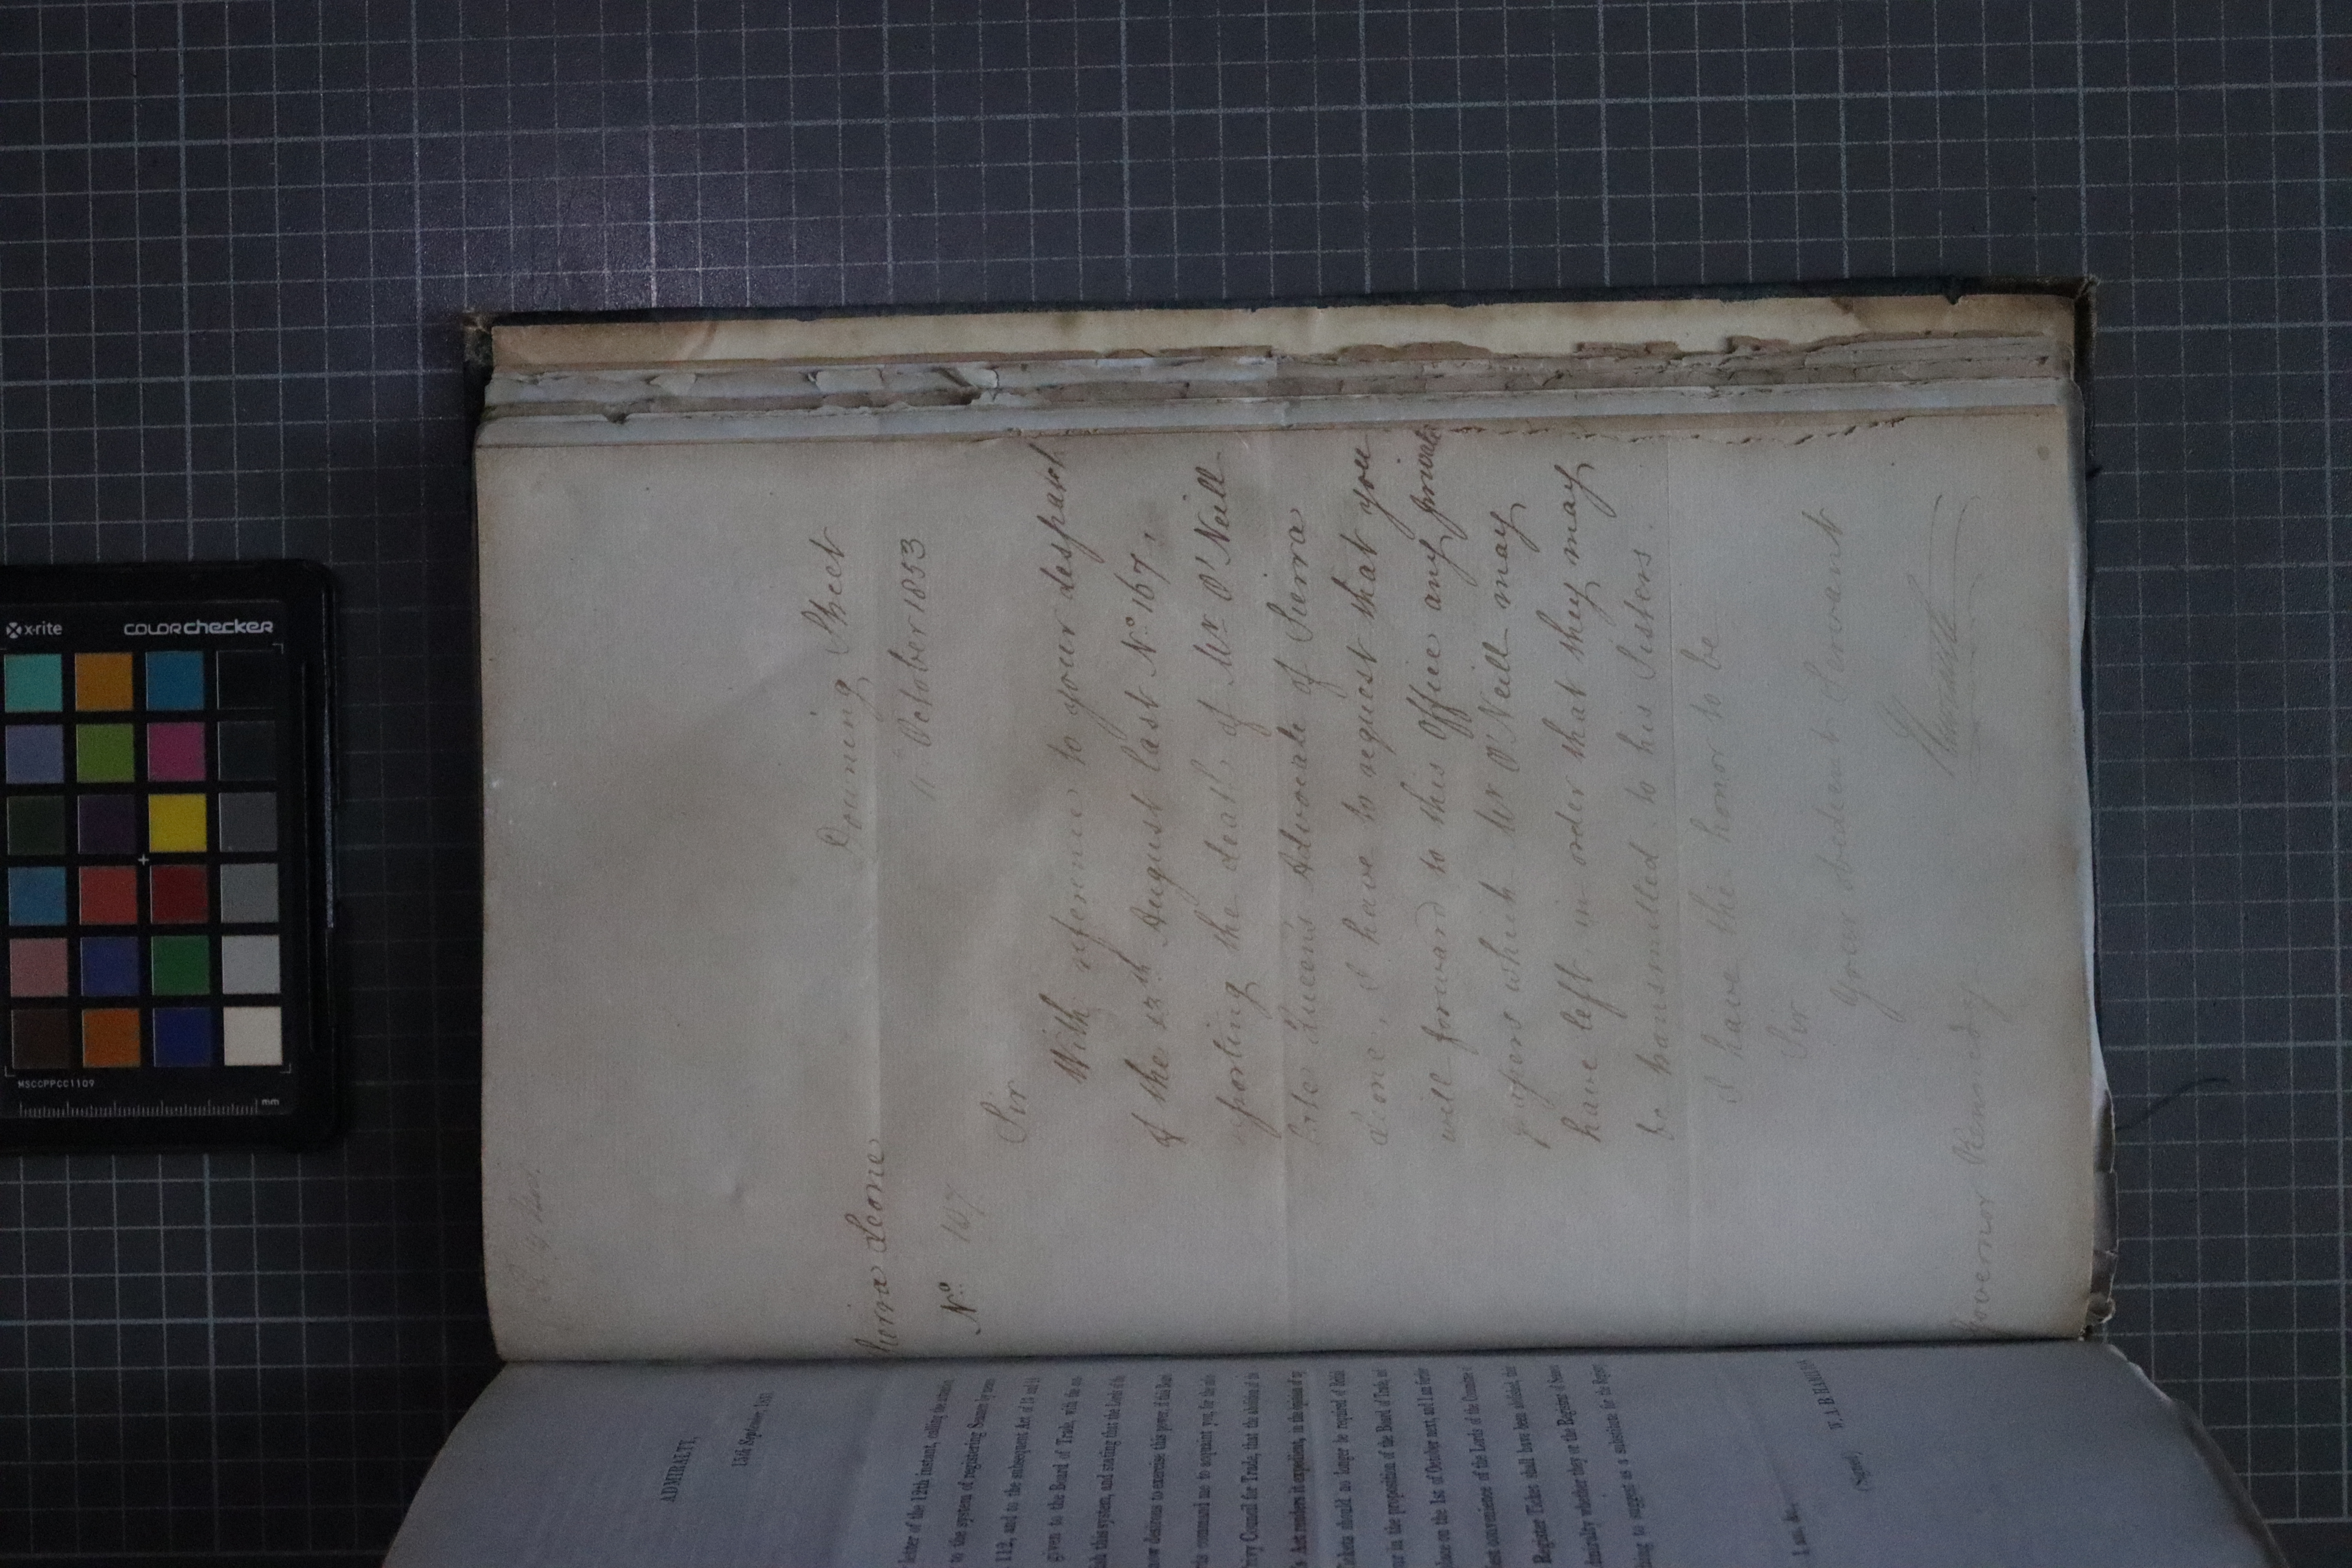 Sierra Leone
Downing Street
Nº 167
11 October 1853
Sir
With reference to your despatch
of the 13th August last Nº 167,
reporting the death of Mr O'Neill
late Queen's Advocate of Sierra
Leone, I have to request that you
will forward to this Office any private
papers which Mr O'Neill may
have left in order that they may
be transmitted to his Sisters.
I have the honor to be
Sir
Your obedient Servant
Newcastle
Governor Kennedy
ADMIRALTY,
13th September, 1853
letter of the 12th instant, calling the attention
to the system of registering Seamen by means
112, and to the subsequent Act of 13 and 14
given to the Board of Trade, with the
this system, and stating that the Lords of the
now desirous to exercise this power, if this Board
command me to acquaint you, for the
Privy Council for Trade, that the abolition of the
Act renders it expedient, in the opinion of
Tickets should no longer be required of British
in the proposition of the Board of Trade,
place on the 1st of October next, and I am further
convenience of the Lords of the Committee
Register Ticket shall have been abolished,
Admiralty whether they or the Registrar of Seamen
thing to suggest as a substitute for the Register
I am, &c.
(Signed) W. A. B. HAMILTON
x-rite
colorchecker
MSCCPPCC1109
mm